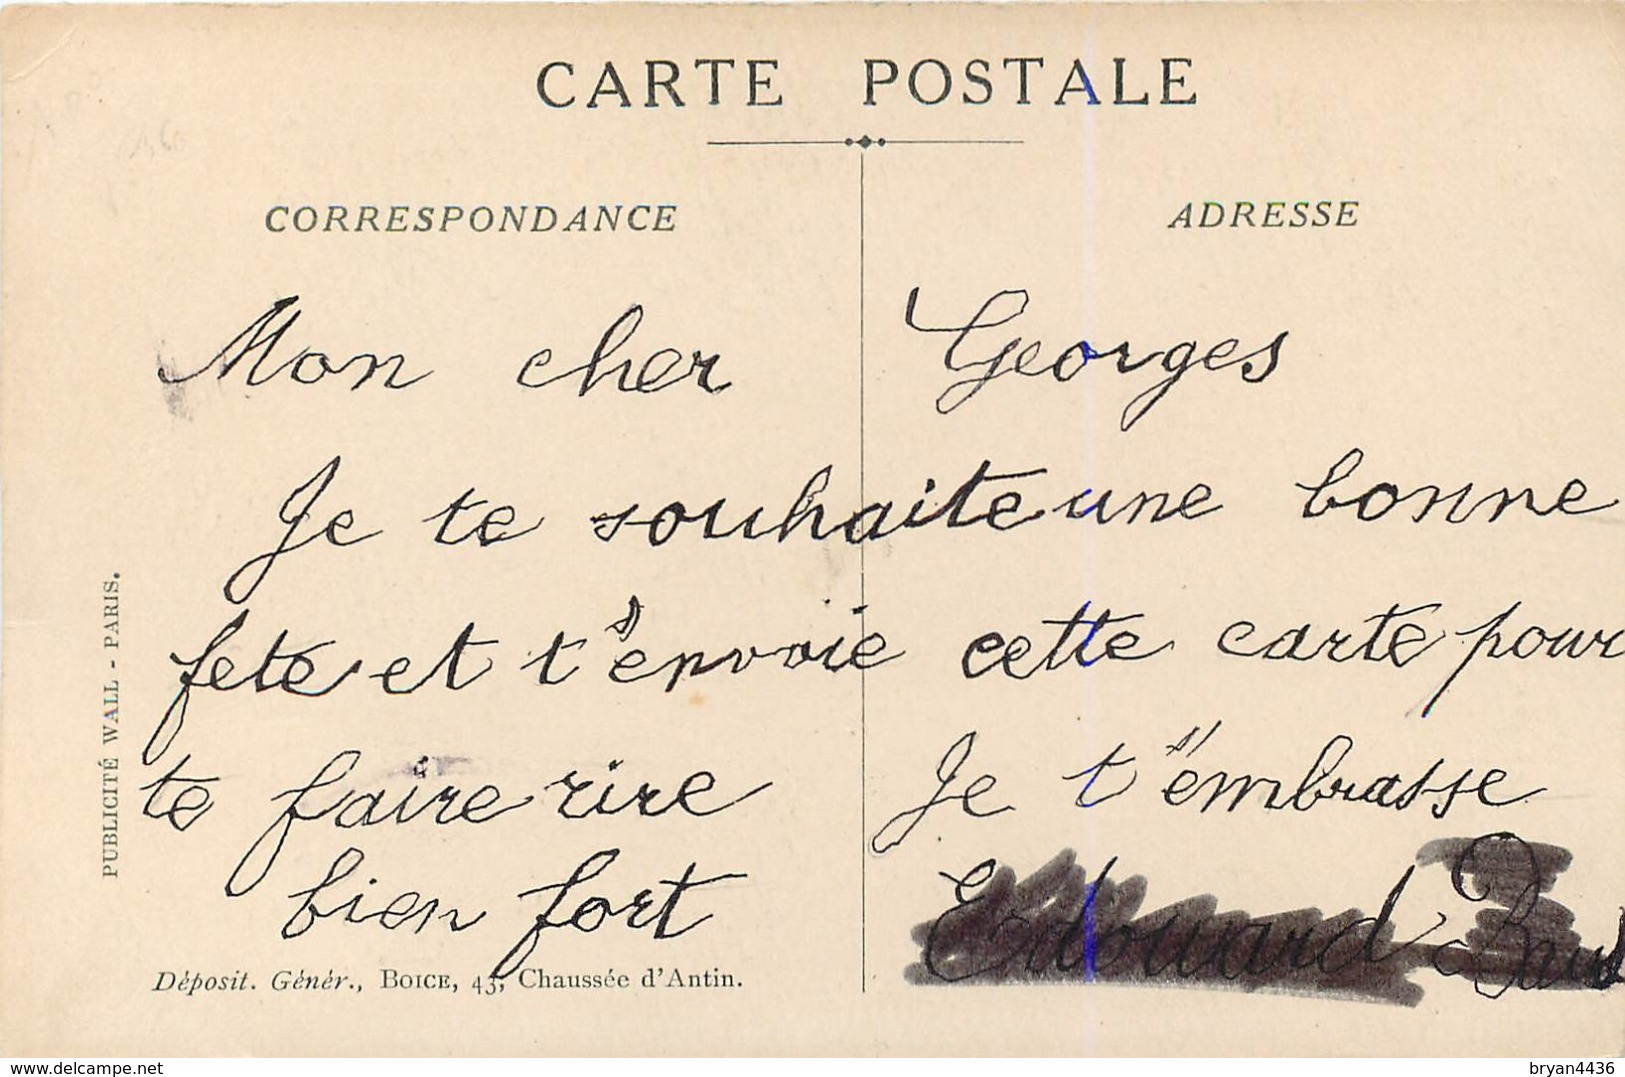 CARTE POSTALE
CORRESPONDANCE
ADRESSE
Mon cher Georges
Je te souhaite une bonne
fete et t'envoie cette carte pour
te faire rire Je t'embrasse
bien fort Edouard
PUBLICITÉ WALL - PARIS.
Déposit. Génér., BOICE, 43, Chaussée d'Antin.
delcampe.net
bryan4436